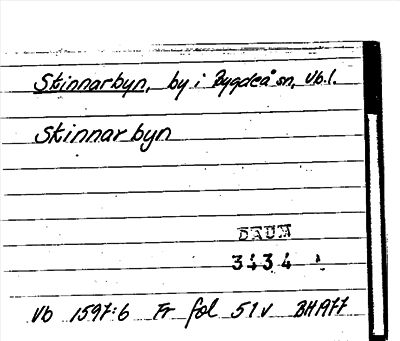 Skinnarbyn, by i Bygdeå sn, Vb.l.
Skinnarbyn
DAUM
3434
Vb 1597:6 Fr fol 51v BHA77